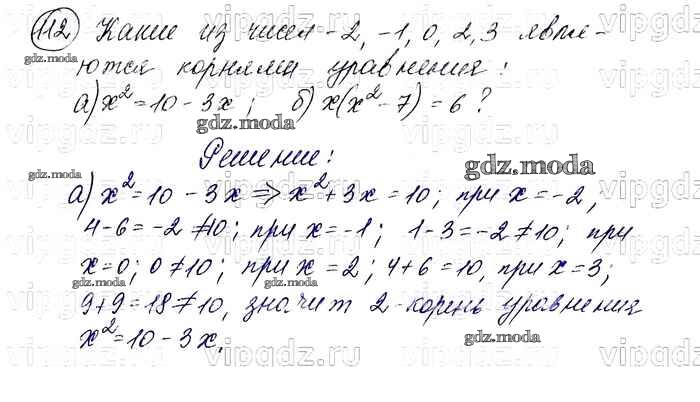 112 Какие из чисел -2, -1, 0, 2, 3 явля-
ются корнями уравнения:
а) x² = 10 - 3x; б) x(x² - 7) = 6?
Решение:
а) x² = 10 - 3x ⇒ x² + 3x = 10; при x = -2,
4 - 6 = -2 ≠ 10; при x = -1; 1 - 3 = -2 ≠ 10; при
x = 0; 0 ≠ 10; при x = 2; 4 + 6 = 10, при x = 3;
9 + 9 = 18 ≠ 10, значит 2 - корень уравнения
x² = 10 - 3x,
gdz.moda
gdz.moda
gdz.moda
gdz.moda
gdz.moda
gdz.moda
gdz.moda
gdz.moda
vipgdz.ru
vipgdz.ru
vipgdz.ru
vipgdz.ru